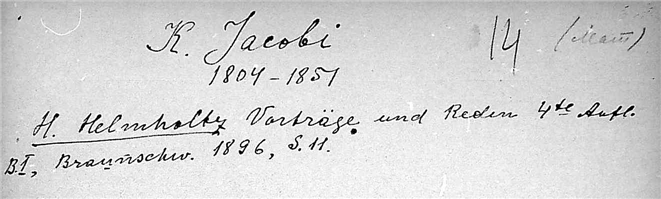 K. Jacobi 14
1804-1851
H. Helmholtz Vorträge und Reden 4te Aufl.
B.I, Braunschw. 1896, S.11.